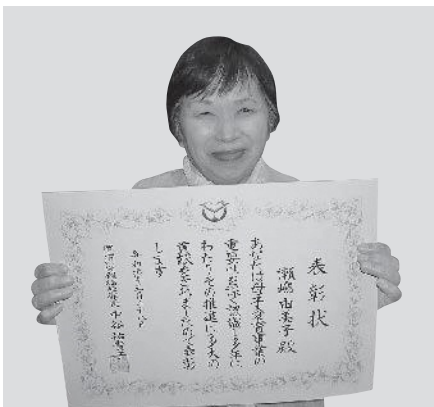 表彰状
瀬嶋由美子殿
あなたは母子愛育事業の
重要性を深く認識し多年に
わたりその推進に多大の
貢献をされましたので表彰
します